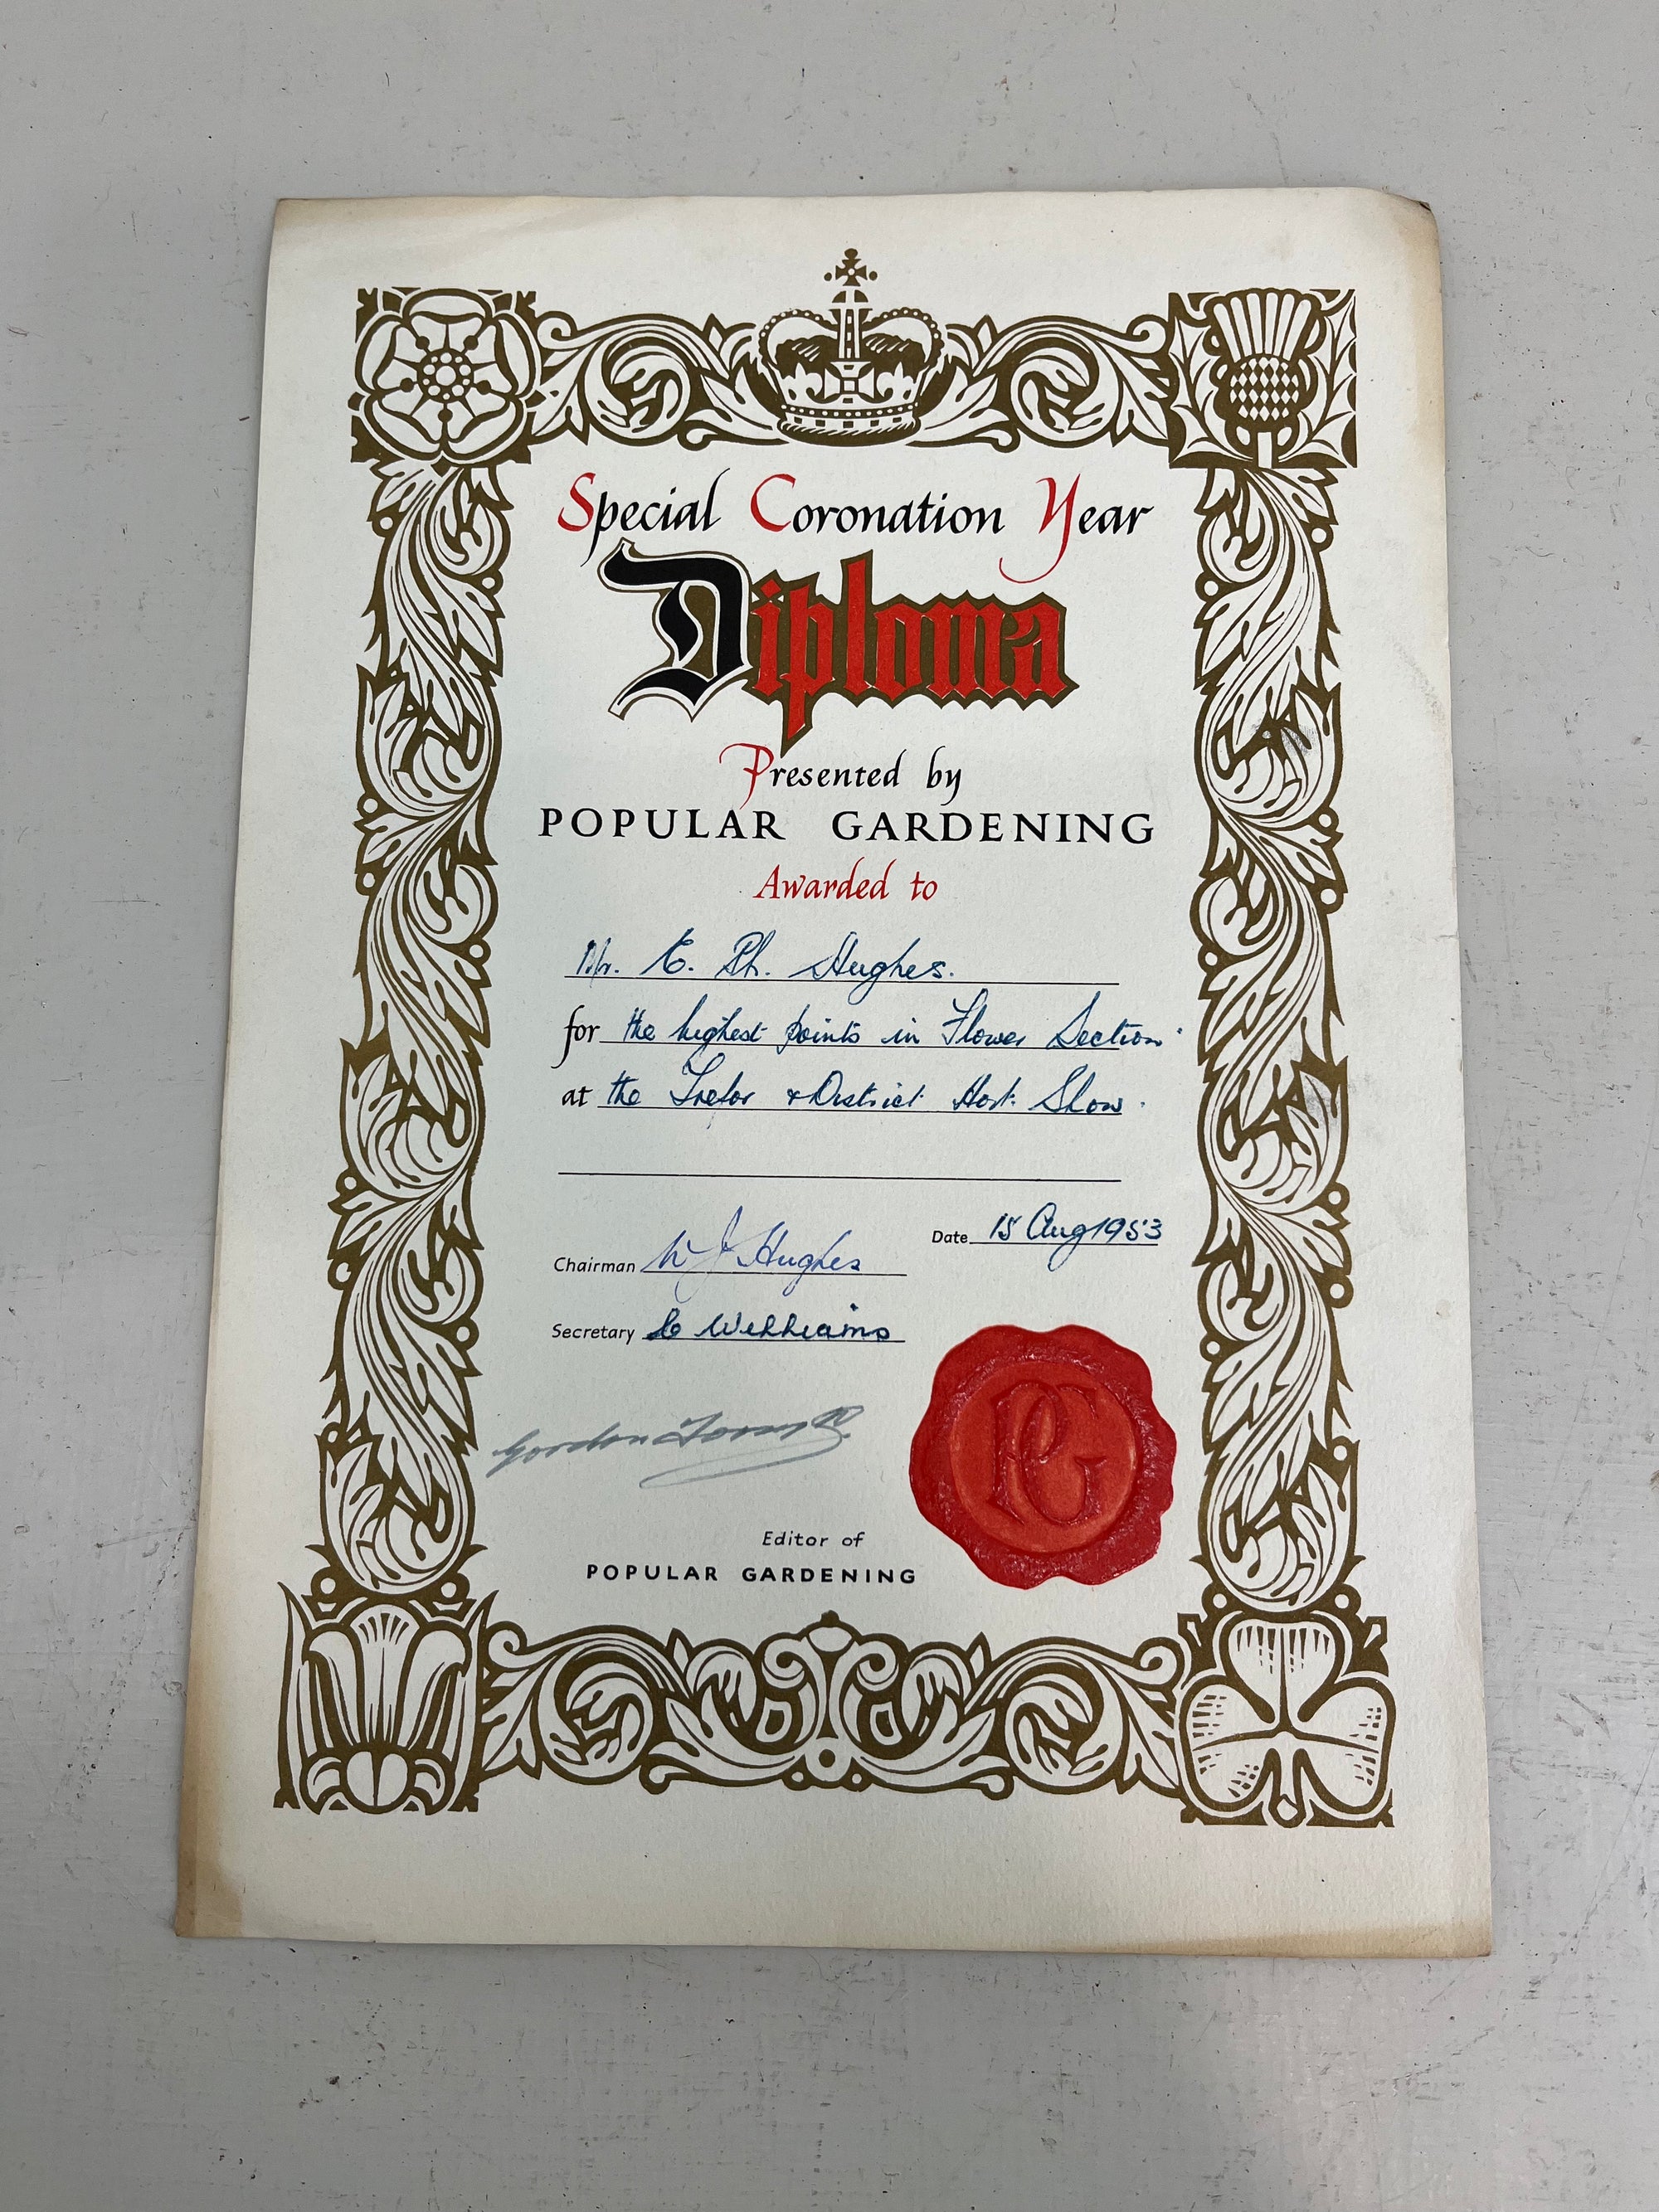 Special Coronation Year
Diploma
Presented by
POPULAR GARDENING
Awarded to
Mr. E. Ph. Hughes.
for the highest points in Flower Section.
at the Trefor & District Hort. Show.
Date 15 Aug 1953
Chairman W J Hughes
Secretary Williams
Gordon Forsyth
Editor of
POPULAR GARDENING
PG